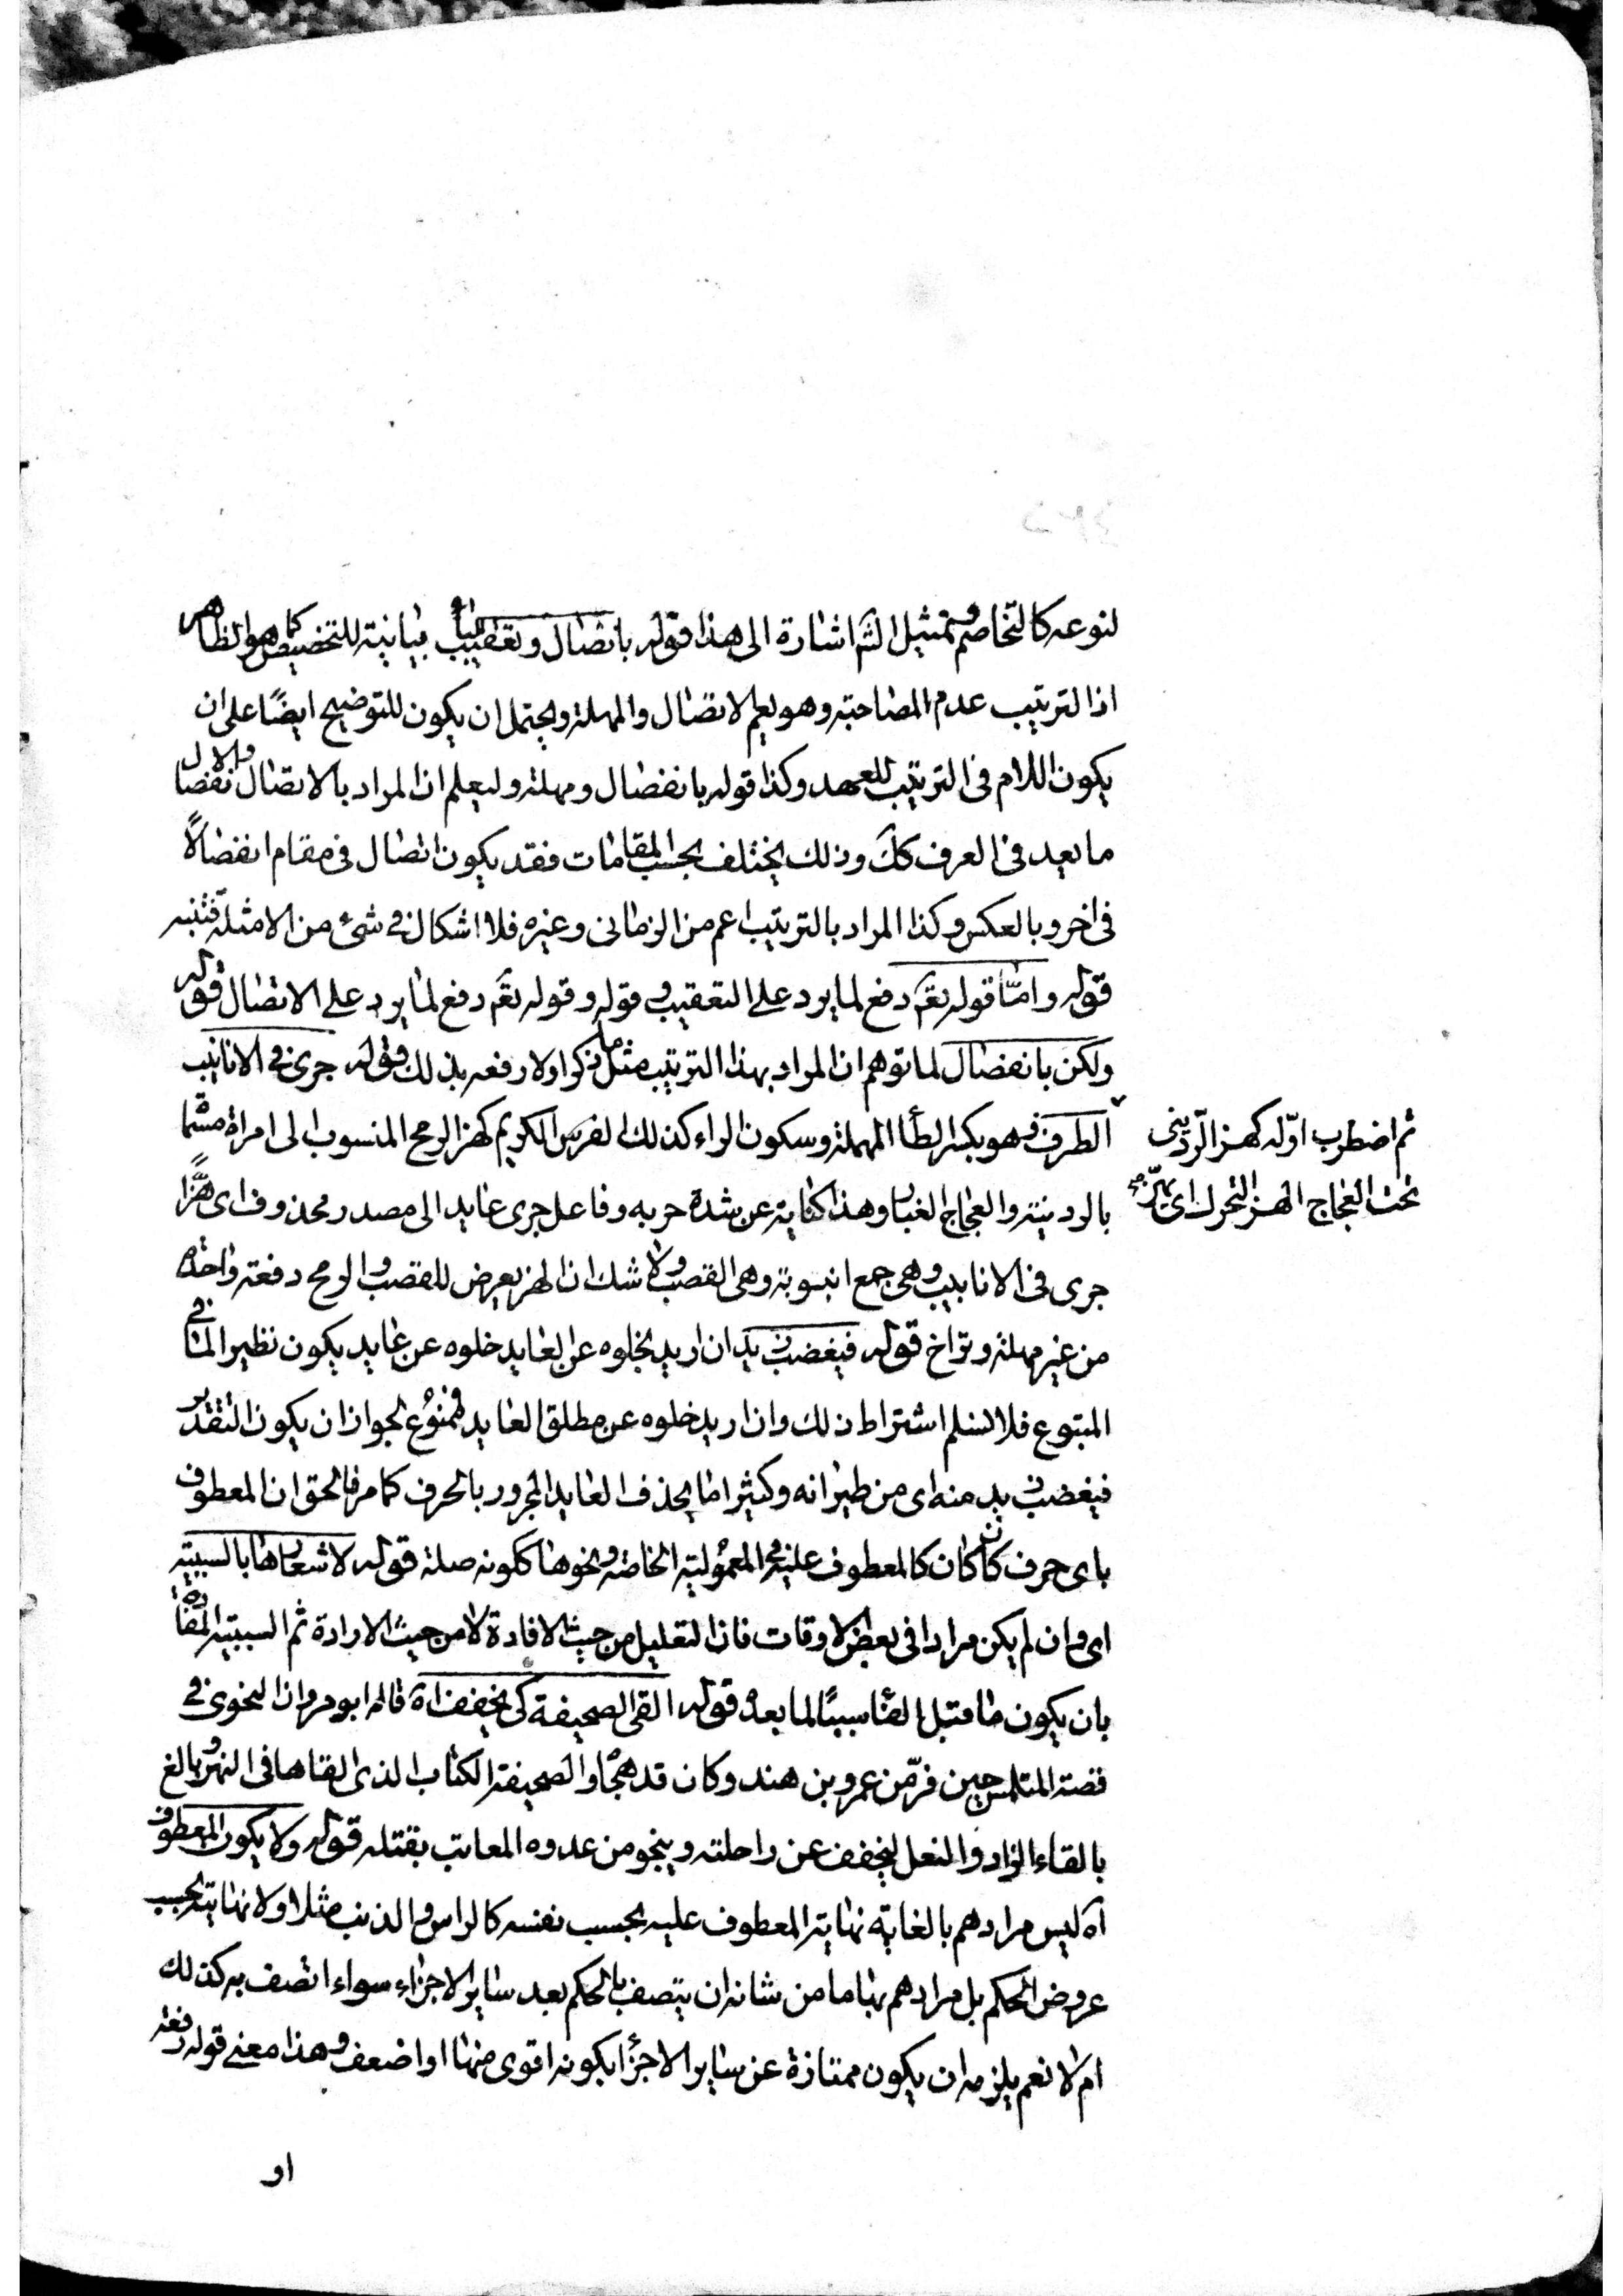 لنوعه كالتخاصم وتمثيل الشم اشارة الى هذا قوله باتصال وتعقيب الباء بيانية للتخصيص كما هو الظاهر
اذ الترتيب عدم المصاحبة وهو يعم الاتصال والمهلة ويحتمل ان يكون للتوضيح ايضًا على ان
يكون اللام فى الترتيب للعهد وكذا قوله بانفصال ومهلة وليعلم ان المراد بالاتصال والانفصال
ما يعد فى العرف كك وذلك يختلف بحسب المقامات فقد يكون اتصال فى مقام انفصالًا
فى اخر وبالعكس وكذا المراد بالترتيب اعم من الزمانى وغيره فلا اشكال فى شئ من الامثلة فتنبه
قوله وامّا قوله تعم دفع لما يرد على التعقيب وقوله وقوله تعم دفع لما يرد على الاتصال قوله
ولكن بانفصال لما توهم ان المراد بهذا الترتيب مثل ما ذكر اولا دفعه بذلك قوله جرى فى الانابيب
الطرف هو بكسر الطأ المهملة وسكون الراء كذلك الفرس الكريم كهز الرمح المنسوب الى امراة مسماة
ثم اضطرب اوّله كهز الرّدينى
تحت العجاج الهز التحرك اى يهتز
بالردينية والعجاج الغبار وهذا كناية عن شدة جريه وفاعل جرى عايد الى مصدر محذوف اى هزًّا
جرى فى الانابيب وهى جمع انبوبة وهى القصب ولا شك ان الهز يعرض للقصب والرمح دفعة واحدة
من غير مهلة وتراخ قوله فيغضب زيد ان اريد بخلوه عن العايد خلوه عن عايد يكون نظير الما فى
المتبوع فلا نسلم اشتراط ذلك وان اريد خلوه عن مطلق العايد فممنوع لجواز ان يكون التقدير
فيغضب زيد منه اى من طيرانه وكثيرا ما يحذف العايد المجرور بالحرف كما مر فالحق ان المعطوف
باى حرف كان كان كالمعطوف عليه فى المعمولية الخاصة ونحوها ككونه صلة قوله لاشعارها بالسببية
اى وان لم يكن مرادا فى بعض الاوقات فان التعليل من حيث الافادة لا من حيث الارادة ثم السببية المفادة
بان يكون ما قبل الفأ سببًا لما بعده قوله القى الصحيفة كى يخفف اه قاله ابو مروان النحوى فى
قصة المتلمس حين فرّ من عمرو بن هند وكان قد هجاه والصحيفة الكتاب الذى القاها فى النهر وبالغ
بالقاء الزاد والنعل ليخفف عن راحلته وينجو من عدوه المعاتب بقتله قوله ولا يكون المعطوف
اه ليس مرادهم بالغاية نهاية المعطوف عليه بحسب نفسه كالراس والذنب مثلا ولا نهايته بحسب
عروض الحكم بل مرادهم بها ما من شانه ان يتصف بالحكم بعد ساير الاجزاء سواء اتصف به كذلك
ام لا نعم يلزمه ان يكون ممتازة عن ساير الاجزأ بكونه اقوى منها او اضعف وهذا معنى قوله رفعة
او